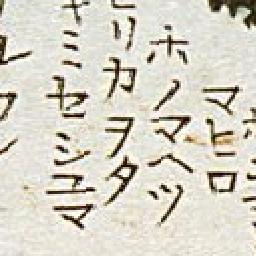 マヒロ
ホノマヘツ
ヒリカヲタ
キミセシユマ